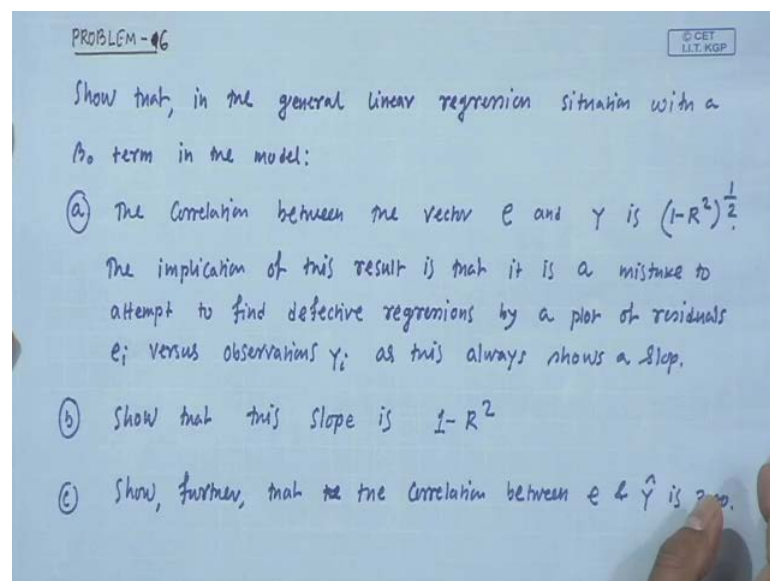 PROBLEM-16
© CET
I.I.T. KGP
Show that, in the general linear regression situation with a
β₀ term in the model:
(a) The Correlation between the vector e and Y is (1-R²)^½.
The implication of this result is that it is a mistake to
attempt to find defective regressions by a plot of residuals
eᵢ versus observations Yᵢ as this always shows a slop.
(b) Show that this slope is 1-R²
(c) Show, further, that the correlation between e & Ŷ is